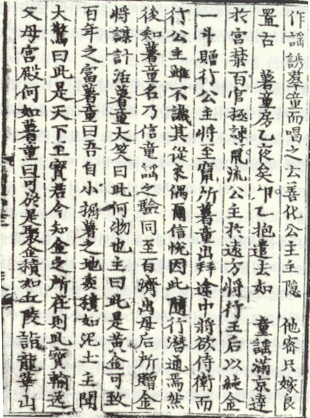 作謠誘羣童而唱之云 善化公主主隱 他密只嫁良
置古 薯童房乙夜矣卯乙抱遣去如 童謠滿京達
於宮禁百官極諫竄流公主於遠方將行王后以純金
一斗贈行公主將至竄所薯童出拜途中將欲侍衛而
行公主雖不識其從來偶爾信悅因此隨行潛通焉然
後知薯童名乃信童謠之驗同至百濟出母后所贈金
將謀計活薯童大笑曰此何物也主曰此是黃金可致
百年之富薯童曰吾自小掘薯之地委積如泥土主聞
大驚曰此是天下至寶君今知金之所在則此寶輸送
父母宮殿何如薯童曰可於是聚金積如丘陵詣龍華山